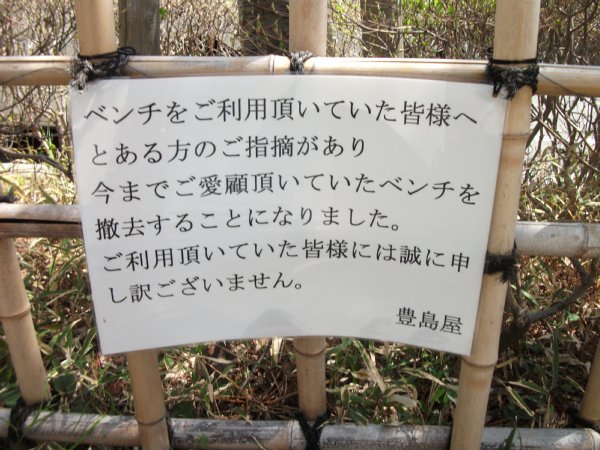 ベンチをご利用頂いていた皆様へ
とある方のご指摘があり
今までご愛顧頂いていたベンチを
撤去することになりました。
ご利用頂いていた皆様には誠に申
し訳ございません。
豊島屋